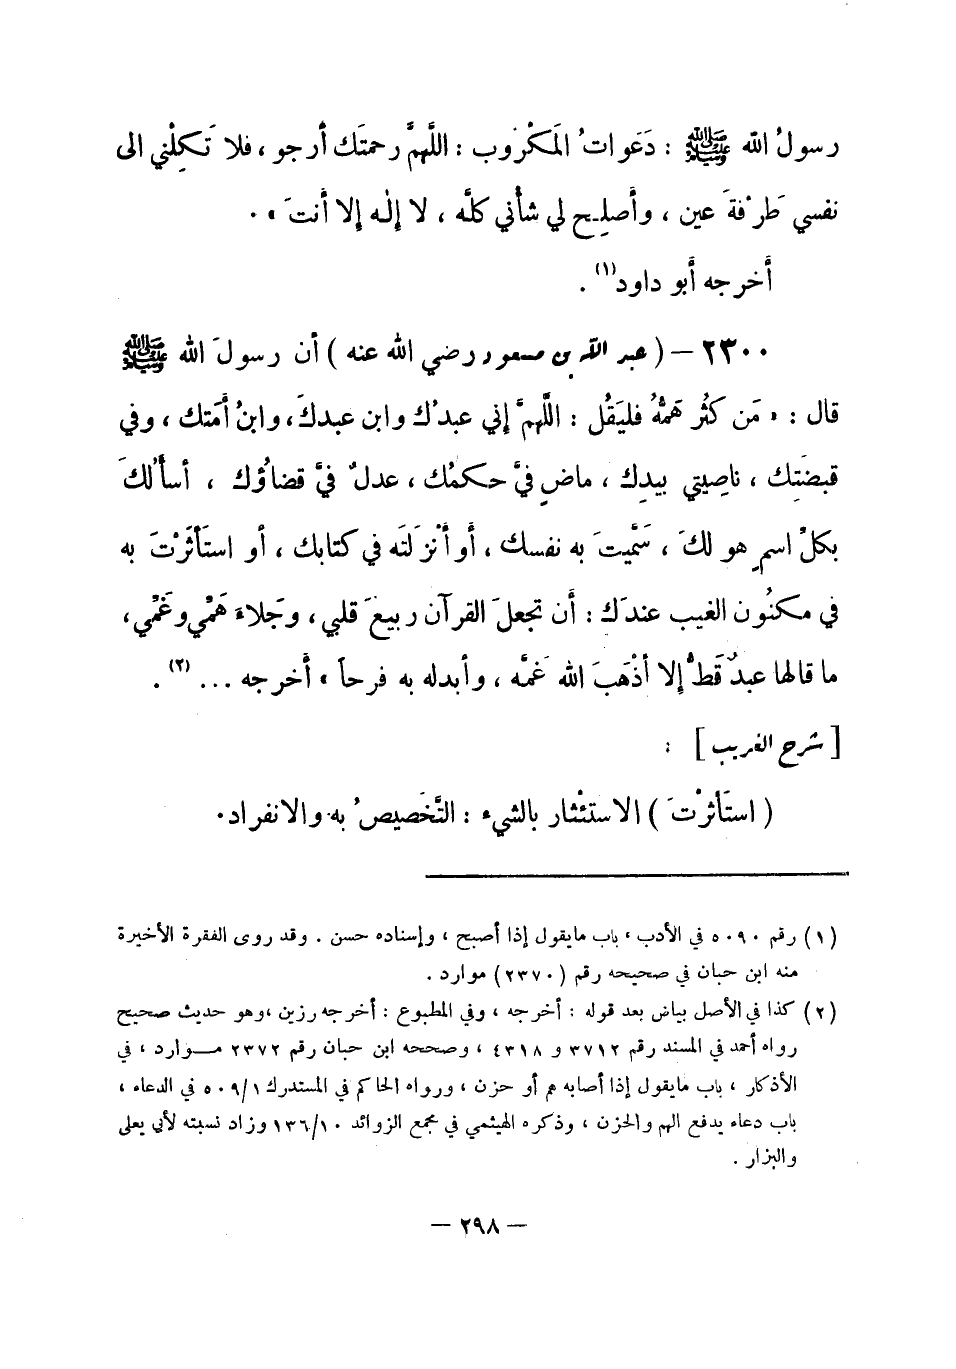 رسولُ الله ﷺ : دَعَواتُ المَكْروب : اللَّهمَّ رحمتَك أرجو ، فلا تَكِلْني الى
نفسي طَرْفةَ عين ، وأصلِح لي شأني كلَّه ، لا إلٰه إلا أنتَ » .
أخرجه أبو داود(١) .
٢٣٠٠ – ( عبد الله بن مسعود رضي الله عنه ) أن رسولَ الله ﷺ
قال : « مَن كثُر هَمُّهُ فليَقُل : اللَّهمَّ إني عبدُك وابن عبدكَ، وابنُ أَمَتك ، وفي
قبضَتِك ، ناصِيتي بيدِك ، ماضٍ فيَّ حكمُك ، عدلٌ فيَّ قضاؤُك ، أسألُكَ
بكلِّ اسمٍ هو لكَ ، سَمَّيتَ به نفسك ، أو أنْزَلتَه في كتابك ، أو استَأثَرْتَ به
في مكنُون الغيب عندَك : أن تجعلَ القرآن ربيعَ قلبي ، وجَلاءَ هَمِّي وغَمِّي ،
ما قالها عبدٌ قَطُّ إلا أذْهَبَ الله غَمَّه ، وأبدله به فرحاً » أخرجه ... (٢) .
[ شرح الغريب ] :
( استَأثرْتَ ) الاستئْثار بالشيء : التَّخصيصُ به والانفراد .
(١) رقم ٥٠٩٠ في الأدب ، باب مايقول إذا أصبح ، وإسناده حسن . وقد روى الفقرة الأخيرة
منه ابن حبان في صحيحه رقم (٢٣٧٠) موارد .
(٢) كذا في الأصل بياض بعد قوله : أخرجه ، وفي المطبوع : أخرجه رزين ،وهو حديث صحيح
رواه أحمد في المسند رقم ٣٧١٢ و ٤٣١٨ ، وصححه ابن حبان رقم ٢٣٧٢ موارد ، في
الأذكار ، باب مايقول إذا أصابه هم أو حزن ، ورواه الحاكم في المستدرك ٥٠٩/١ في الدعاء ،
باب دعاء يدفع الهم والحزن ، وذكره الهيثمي في مجمع الزوائد ١٣٦/١٠ وزاد نسبته لأبي يعلى
والبزار .
– ٢٩٨ –